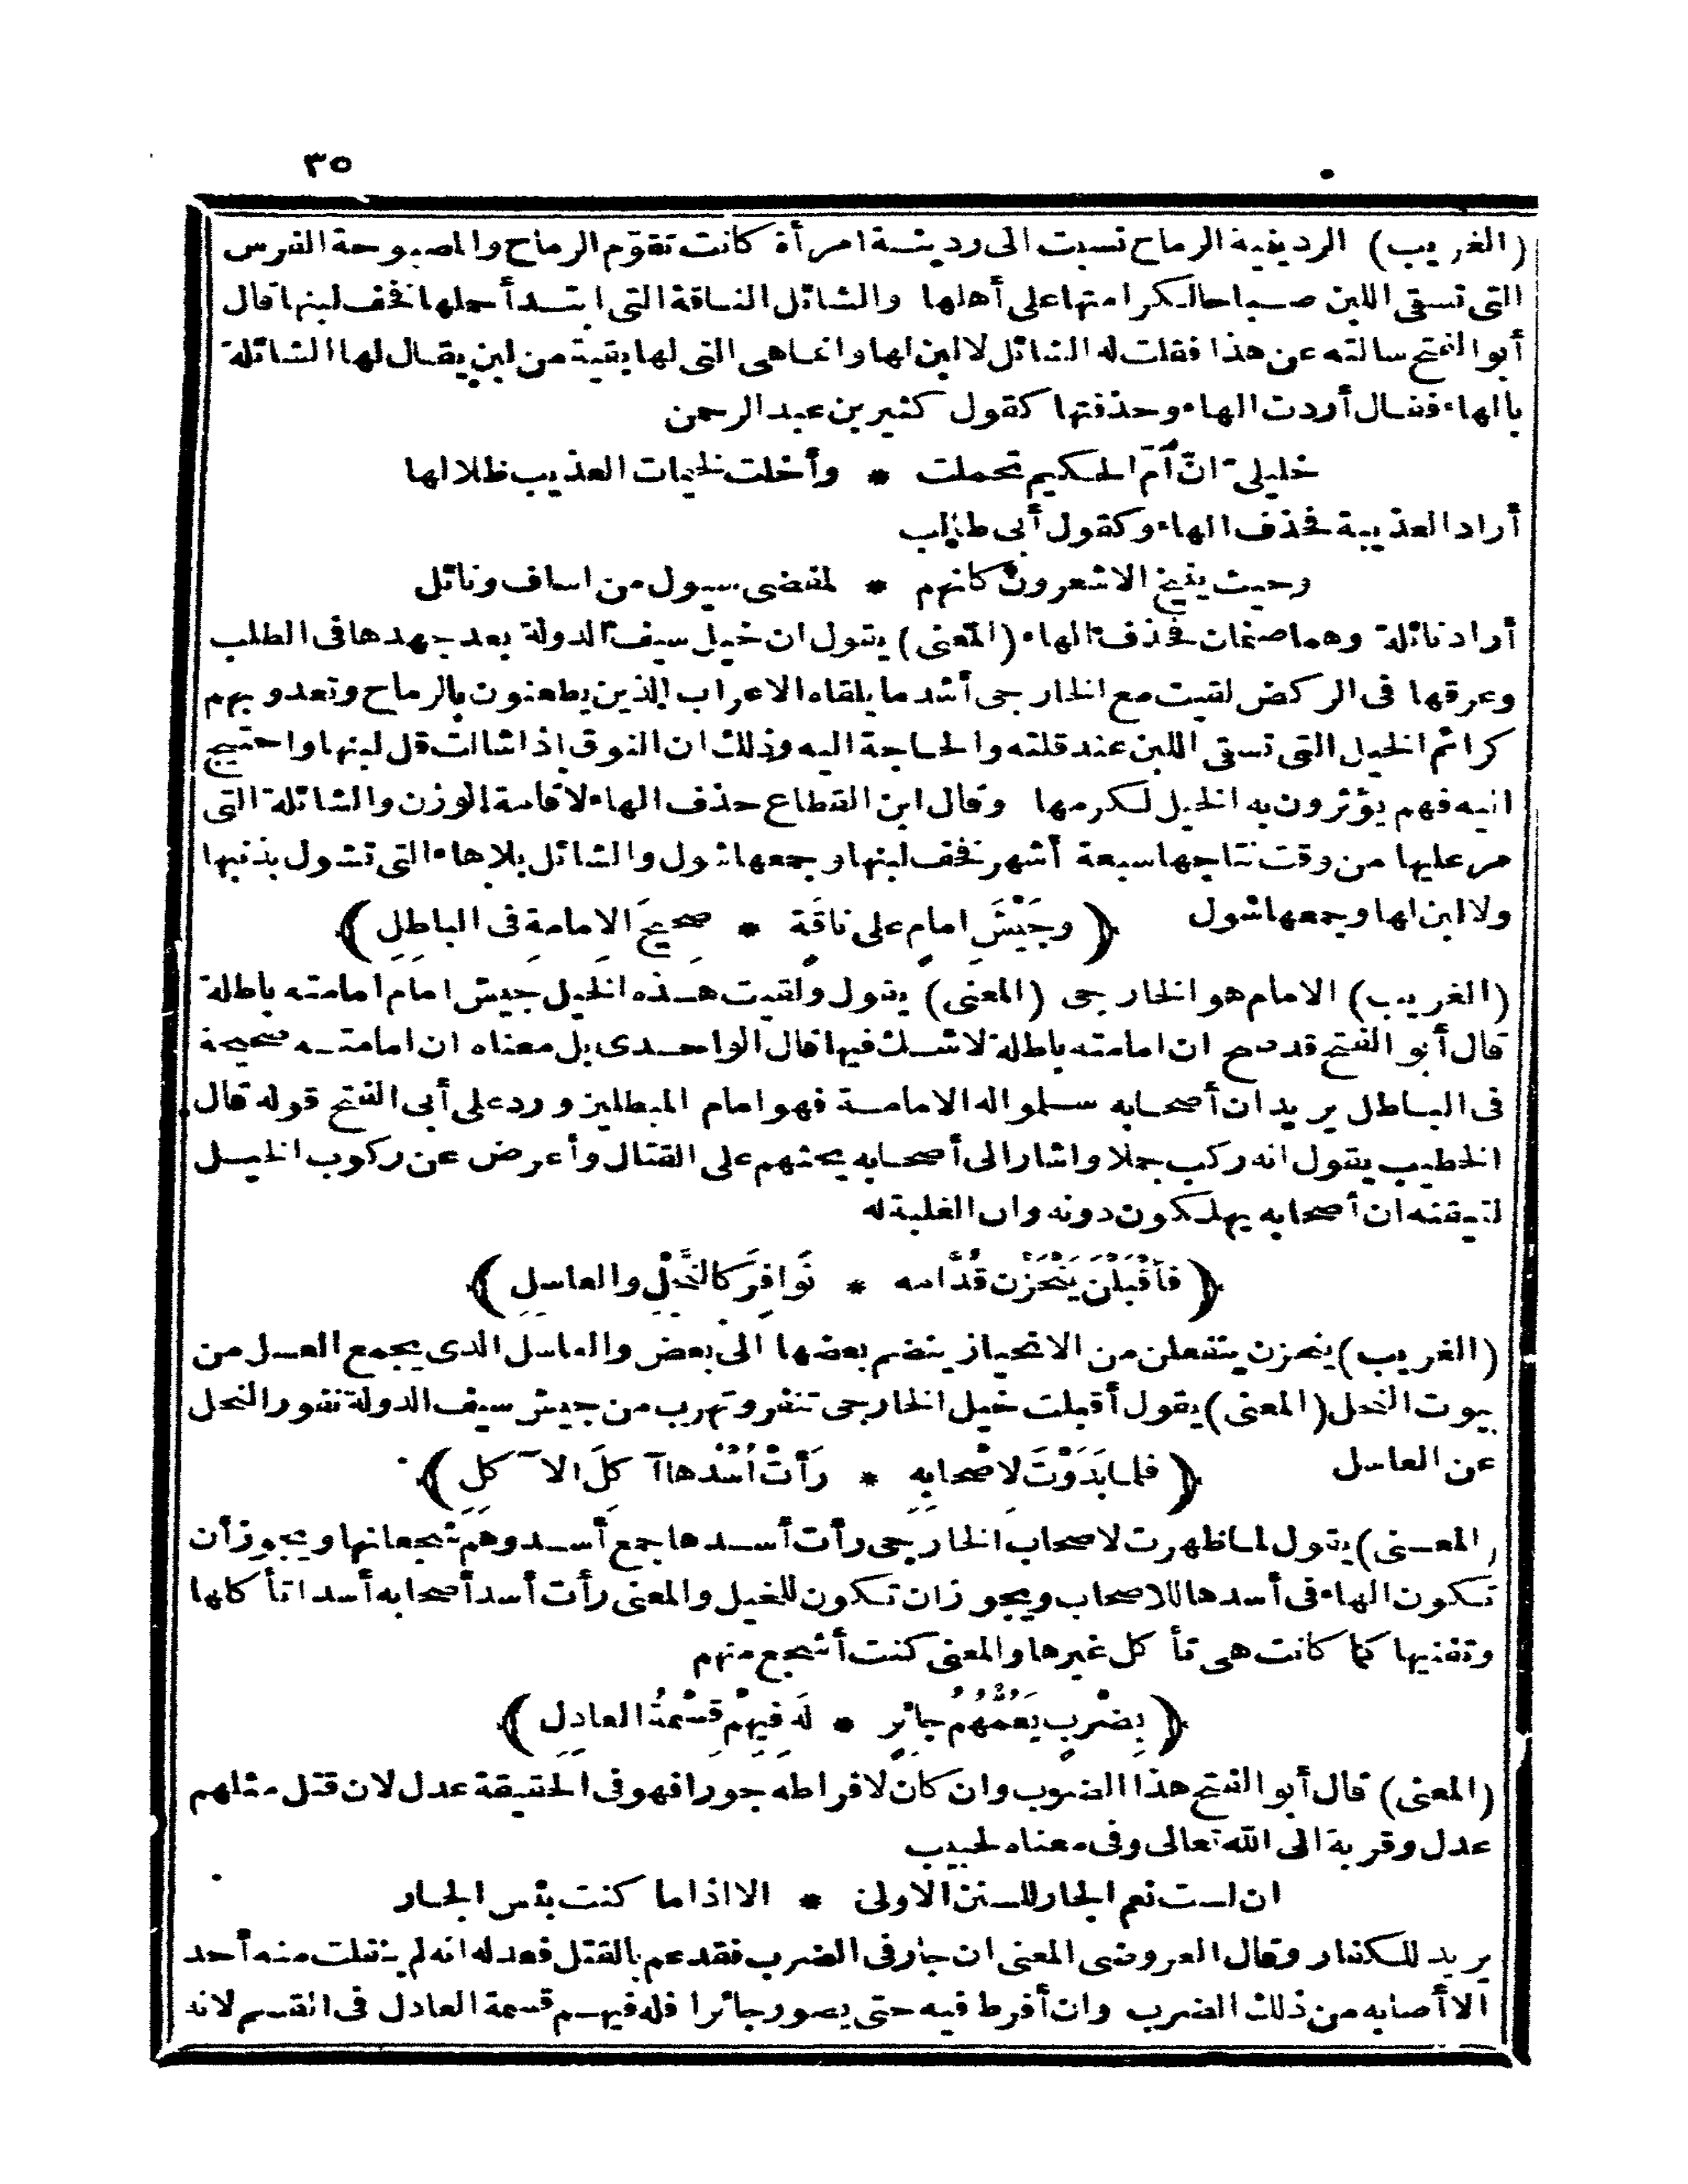 ٣٥
(الغريب) الردينية الرماح نسبت الى ردينة امرأة كانت تقوّم الرماح والمصبوحة الفرس
التى تسقى اللبن صباحا لكرامتها على أهلها والشائل الناقة التى ابتدأ حملها فخف لبنها قال
أبو الفتح سالته عن هذا فقلت له الشائل لا لبن لها وانما هى التى لها بقية من لبن يقال لها الشائلة
بالهاء فقال أردت الهاء وحذفتها كقول كثير بن عبد الرحمن
خليلىّ انّ أمّ الحكيم تحملت * وأخلت لخيمات العذيب ظلالها
أراد العذيبة فحذف الهاء وكقول أبى طالب
وحيث ينيخ الاشعرون كانهم * لمفضى سيول من اساف ونائل
أراد نائلة وهما صنمان فحذف الهاء (المعنى) يقول ان خيل سيف الدولة بعد جهدها فى الطلب
وعرقها فى الركض لقيت مع الخارجى أشد ما يلقاه الاعراب الذين يطعنون بالرماح وتعدو بهم
كرائم الخيل التى تسقى اللبن عند قلته والحاجة اليه وذلك ان النوق اذا شالت قل لبنها واحتيج
اليه فهم يؤثرون به الخيل لكرمها وقال ابن القطاع حذف الهاء لاقامة الوزن والشائلة التى
مر عليها من وقت نتاجها سبعة أشهر فخف لبنها وجمعها شول والشائل بلاهاء التى تشول بذنبها
ولا لبن لها وجمعها شول (وجَيْشَ امامٍ على ناقَةٍ * صحيحَ الاِمامةِ فى الباطِلِ)
(الغريب) الامام هو الخارجى (المعنى) يقول ولقيت هذه الخيل جيش امام امامته باطلة
قال أبو الفتح قد صح ان امامته باطلة لا شك فيها قال الواحدى بل معناه ان امامته صحيحة
فى الباطل يريد ان أصحابه سلموا له الامامة فهو امام المبطلين ورد على أبى الفتح قوله قال
الخطيب يقول انه ركب جملا واشار الى أصحابه يحثهم على القتال وأعرض عن ركوب الخيل
لتيقنه ان أصحابه يهلكون دونه وان الغلبة له
(فأقْبَلْنَ يَنْحَزْنَ قُدّامه * نَوافِرَ كالنَّحْلِ والعاسلِ)
(الغريب) ينحزن ينفعلن من الانحياز ينضم بعضها الى بعض والعاسل الذى يجمع العسل من
بيوت النحل (المعنى) يقول أقبلت خيل الخارجى تنفر وتهرب من جيش سيف الدولة نفور النحل
عن العاسل (فلما بَدَوْتَ لاِصْحابِهِ * رَأتْ اُسْدُها آكِلَ الآكِلِ)
(المعنى) يقول لما ظهرت لاصحاب الخارجى رأت أسدها جمع أسد وهم شجعانها ويجوز أن
تكون الهاء فى أسدها للاصحاب ويجوز ان تكون للخيل والمعنى رأت أسد أصحابه أسدا تأكلها
وتفنيها كما كانت هى تأكل غيرها والمعنى كنت أشجع منهم
(بِضَرْبٍ يَعُمّهُمُ جائرٍ * لَه فيهِمْ قِسْمةُ العادِلِ)
(المعنى) قال أبو الفتح هذا الضرب وان كان لافراطه جورا فهو فى الحقيقة عدل لان قتل مثلهم
عدل وقربة الى الله تعالى وفى معناه لحبيب
ان لست نعم الجار للسنن الاولى * الا اذا ما كنت بئس الجار
يريد للكفار وقال العروضى المعنى ان جار فى الضرب فقد عم بالقتل فعدله انه لم ينفلت منه أحد
الا أصابه من ذلك الضرب وان أفرط فيه حتى يصور جائرا فله فيهم قسمة العادل فى القسم لانه